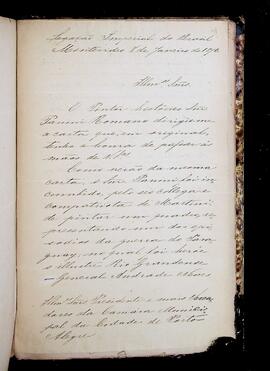 Legação Imperial do Brasil
Montevideo 8 de Janeiro de 187
Illmos Snrs.
O Pintor
Panini Romano dirigio-me
a carta que, em original,
tenho a honra de passar ás
mãos de V. Sas
Como verão da mesma
carta, o Snr. Panini foi in-
cumbido, pelo seu collega e
compatriota de Martini
de pintar um quadro, re-
presentando um dos epi-
sodios da guerra do Para-
guay, no qual foi heroe
o illustre Rio Grandense
General Andrade Neves
Illmos Snrs Presidente e mais Verea-
dores da Camara Munici-
pal da Cidade de Porto
Alegre